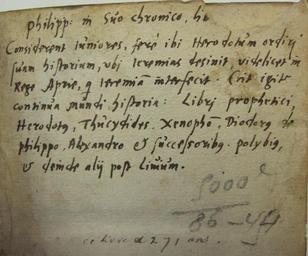 philipp: in Suo chronico, lib
Considerent iuniores, ferè ibi Herodotum ordiri
suam historiam, ubi Ieremias desinit, videlicet in
Rege Aprie, q Ieremiam interfecit. Erit igit
continua mundi historia: Libri prophetici,
Herodotq, Thucydides, Xenophō, Diodorq de
philippo, Alexandro et successoribq. polybiq,
et deinde alij post Livium.
5000
86-44
ce livre a 271 ans.